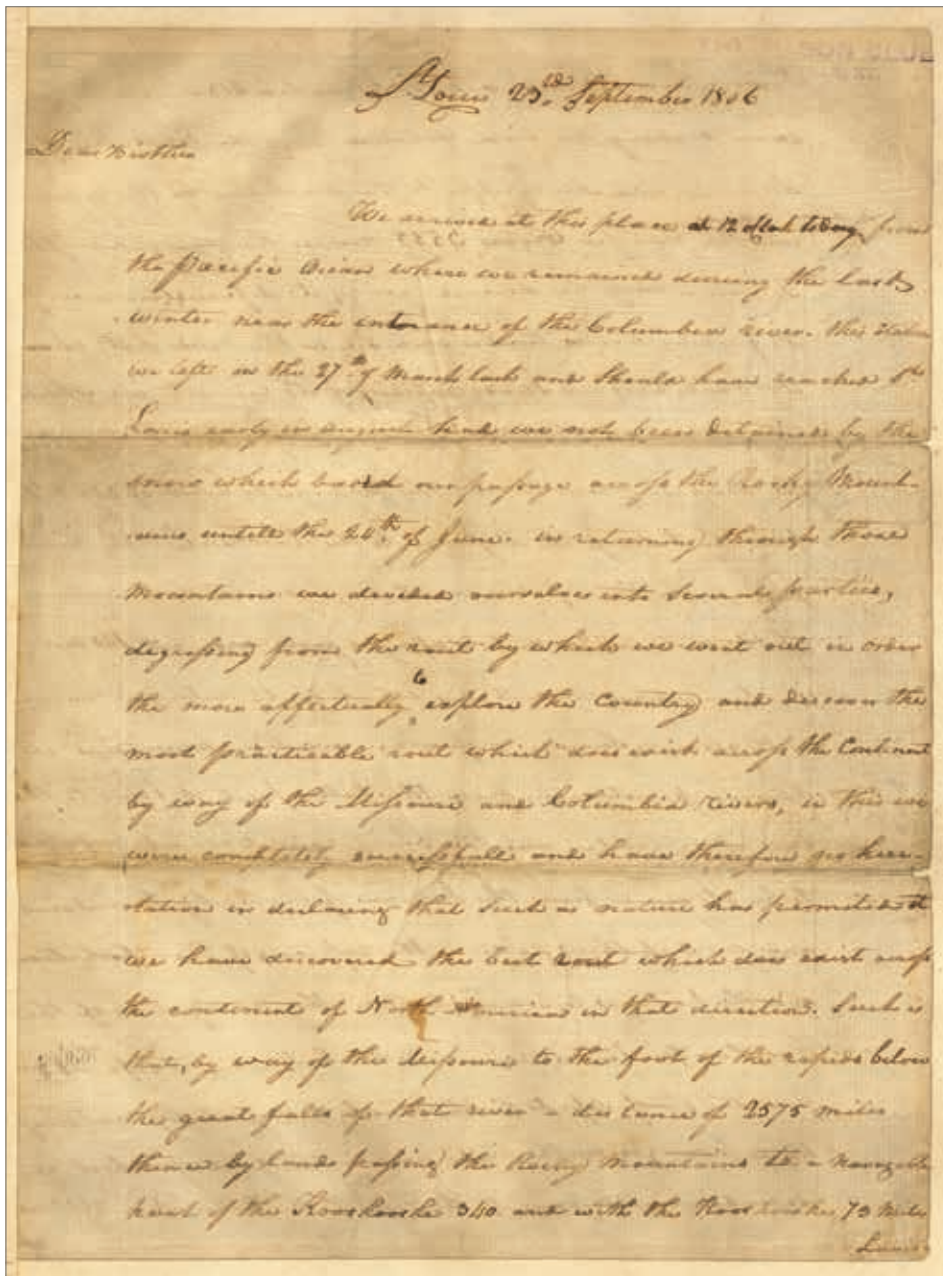 St. Louis 23rd. September 1806
Dear Brother
We arrived at this place at 12 oClock today from
the Pacific Ocian where we remained dureing the last
winter near the entrance of the Columbia river. this station
we left on the 27th of March last and should have reached St.
Louis early in August had we not been detained by the
snow which bar'd our passage across the Rocky Mount-
ains untill the 24th. of June. in returning through those
Mountains we devided ourselves into several parties,
degressing from the rout by which we went out in order
the more effectually to explore the Country and discover the
most practicable rout which does exist across the Continent
by way of the Missouri and Columbia rivers, in this we
were completely successfull and have therefore no hesi-
tation in declaring that such as nature has permited it
we have discovered the best rout which does exist across
the continent of North America in that direction. Such is
that, by way of the Missouri to the foot of the rapids below
the great falls of that river a distance of 2575 miles
thence by land passing the Rocky Mountains to a navigable
part of the Kooskooske 340. and with the Kooskooske 73 Miles
Lewis's